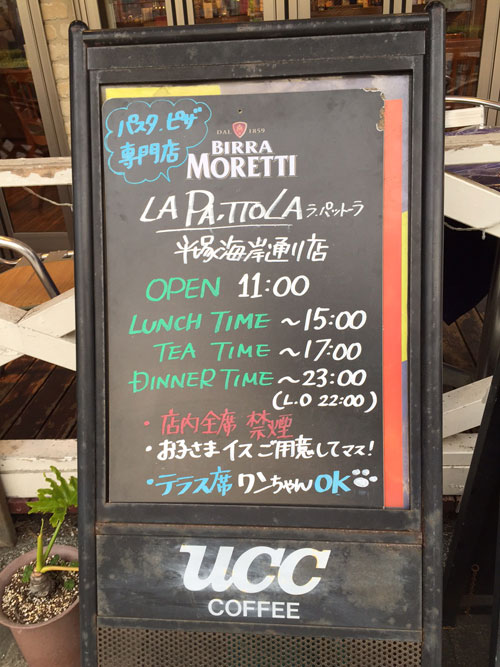 パスタ・ピザ
専門店
DAL 1859
BIRRA
MORETTI
LA PATTOLA ラ・パットーラ
平塚海岸通り店
OPEN 11:00
LUNCH TIME ～15:00
TEA TIME ～17:00
DINNER TIME ～23:00
(L.O 22:00)
・店内全席 禁煙
・お子さまイスご用意してマス!
・テラス席 ワンちゃん OK
UCC
COFFEE